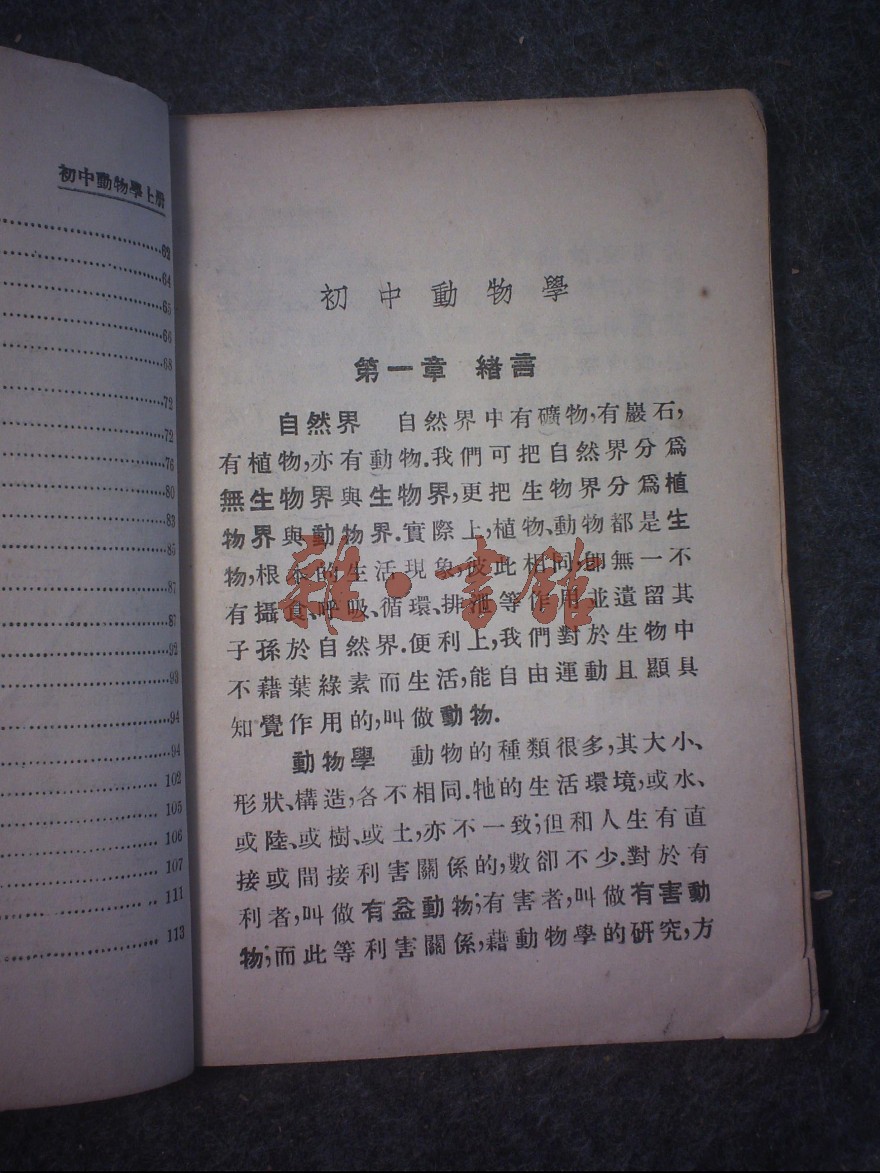 初中動物學上册
62
64
65
66
68
72
72
76
80
83
85
87
87
92
93
94
94
102
105
106
107
111
113
初中動物學
第一章 緒言
自然界 自然界中有礦物,有巖石,
有植物,亦有動物.我們可把自然界分爲
無生物界與生物界,更把生物界分爲植
物界與動物界.實際上,植物、動物都是生
物,根本的生活現象,彼此相同,卽無一不
有攝食、呼吸、循環、排泄等作用並遺留其
子孫於自然界.便利上,我們對於生物中
不藉葉綠素而生活,能自由運動且顯具
知覺作用的,叫做動物.
動物學 動物的種類很多,其大小、
形狀、構造,各不相同.牠的生活環境,或水、
或陸、或樹、或土,亦不一致;但和人生有直
接或間接利害關係的,數卻不少.對於有
利者,叫做有益動物;有害者,叫做有害動
物;而此等利害關係,藉動物學的硏究,方
雜·書館